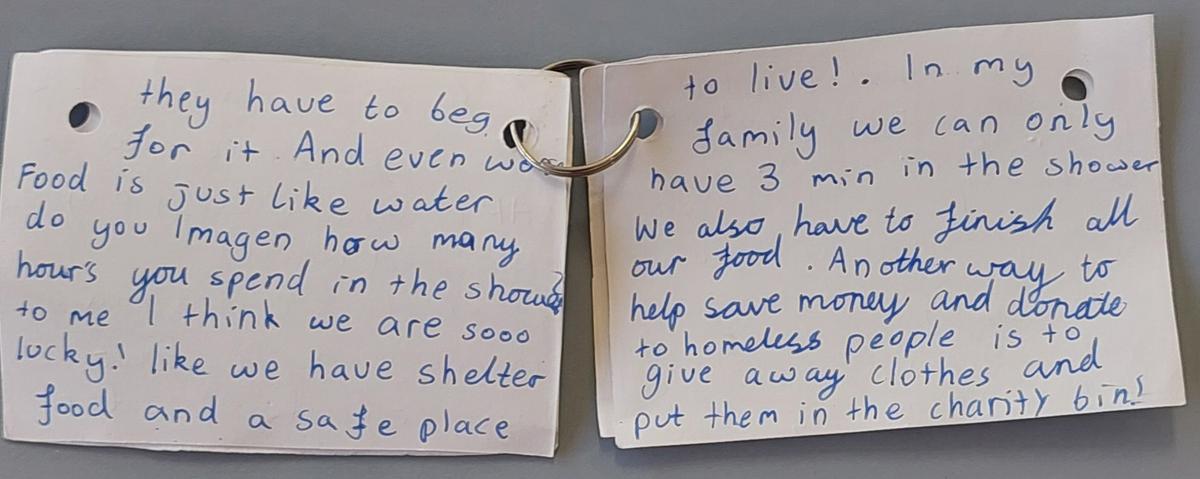 they have to beg
for it. And even
Food is just like water
do you Imagen how many
hour's you spend in the shower?
to me I think we are sooo
lucky! like we have shelter
food and a safe place
to live!. In my
family we can only
have 3 min in the shower
we also have to finish all
our food. Another way to
help save money and donate
to homeless people is to
give away clothes and
put them in the charity bin!